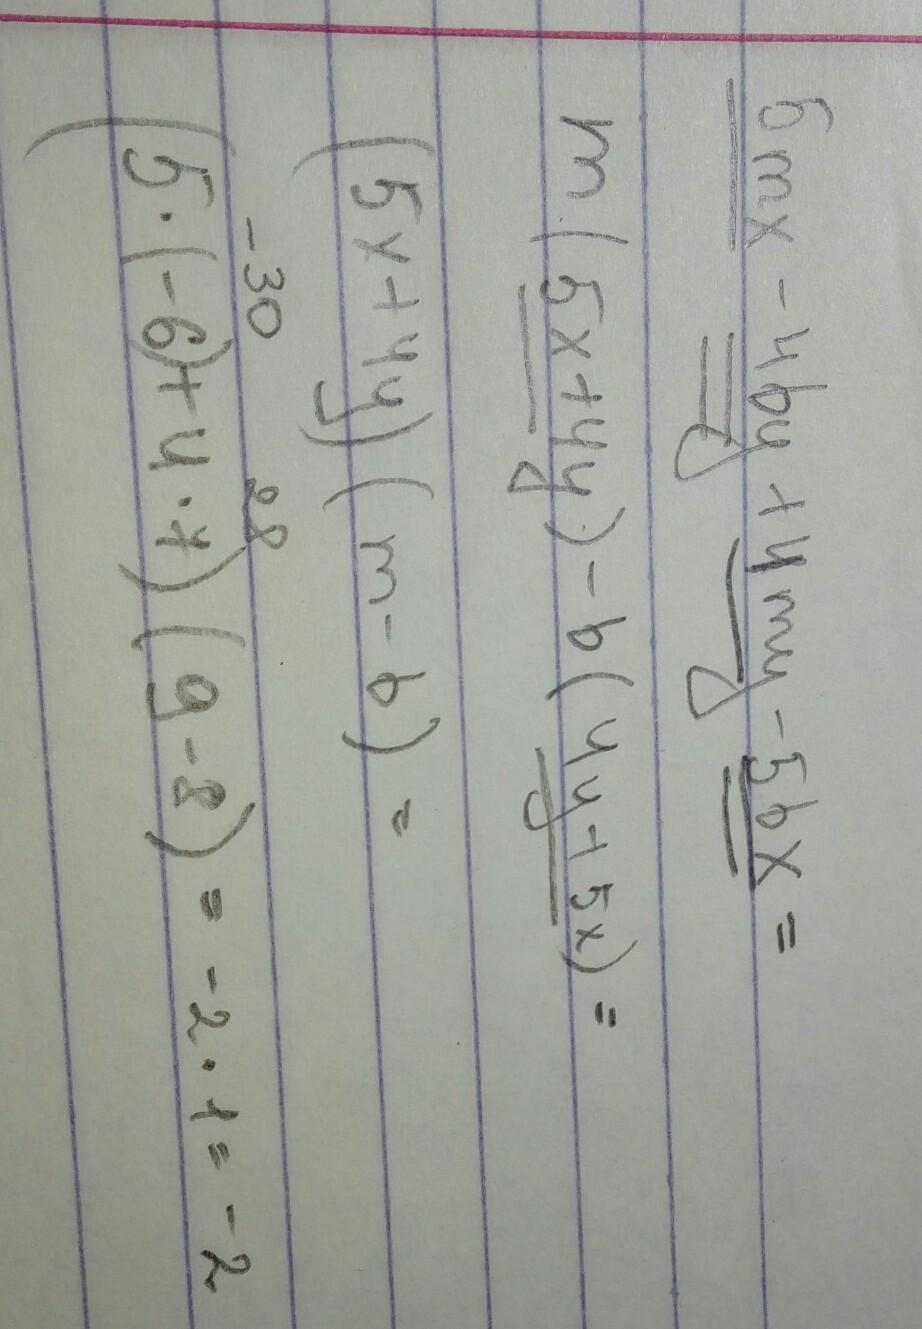 5mx - 4by + 4my - 5bx =
m(5x + 4y) - b(4y + 5x) =
(5x + 4y)(m - b) =
-30 28
(5·(-6) + 4·7)(9 - 8) = -2·1 = -2